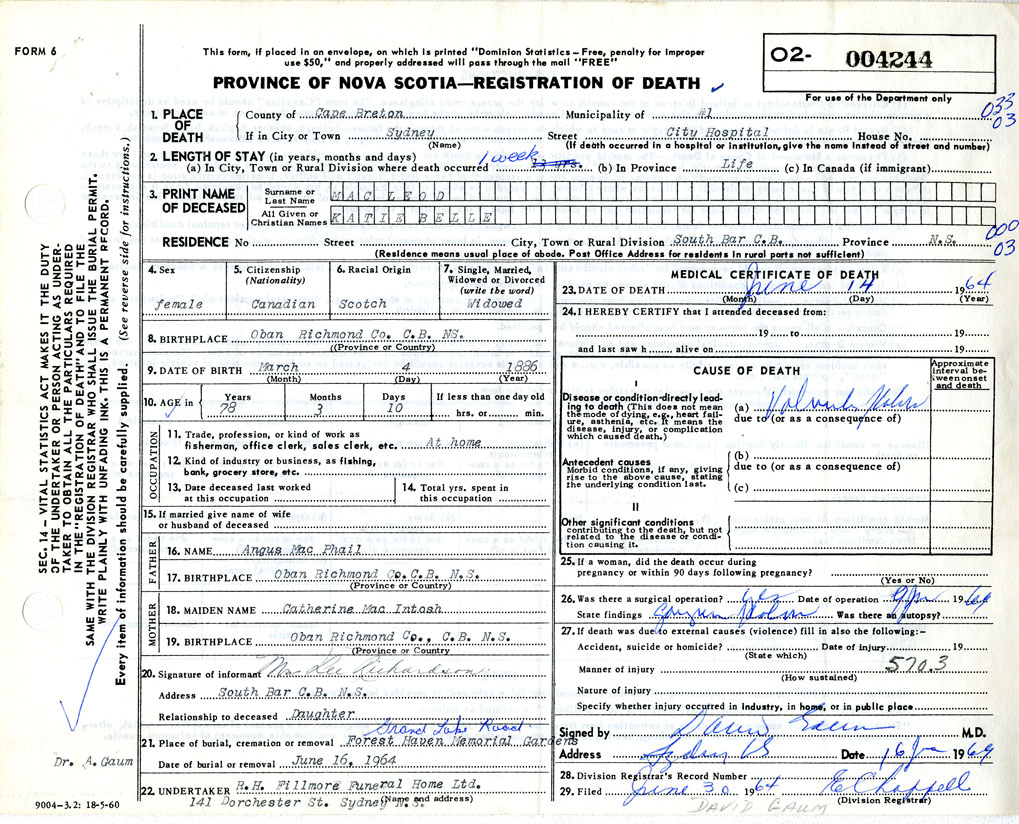 FORM 6
This form, if placed in an envelope, on which is printed "Dominion Statistics – Free, penalty for improper
use $50," and properly addressed will pass through the mail "FREE"
PROVINCE OF NOVA SCOTIA—REGISTRATION OF DEATH
02- 004244
For use of the Department only
033
03
1. PLACE OF DEATH
County of Cape Breton Municipality of #1
If in City or Town Sydney Street City Hospital House No.
(Name) (If death occurred in a hospital or institution, give the name instead of street and number)
2. LENGTH OF STAY (in years, months and days)
1 week
(a) In City, Town or Rural Division where death occurred 13 yrs. (b) In Province Life (c) In Canada (if immigrant)
3. PRINT NAME OF DECEASED
Surname or Last Name MAC LEOD
All Given or Christian Names KATIE BELLE
000
03
RESIDENCE No Street City, Town or Rural Division South Bar C.B. Province N.S.
(Residence means usual place of abode. Post Office Address for residents in rural parts not sufficient)
4. Sex
female
5. Citizenship (Nationality)
Canadian
6. Racial Origin
Scotch
7. Single, Married, Widowed or Divorced (write the word)
Widowed
8. BIRTHPLACE Oban Richmond Co. C.B. NS.
((Province or Country)
9. DATE OF BIRTH March 4 1886
(Month) (Day) (Year)
10. AGE in Years Months Days If less than one day old
78 3 10 hrs. or min.
OCCUPATION
11. Trade, profession, or kind of work as
fisherman, office clerk, sales clerk, etc. At home
12. Kind of industry or business, as fishing,
bank, grocery store, etc.
13. Date deceased last worked
at this occupation
14. Total yrs. spent in
this occupation
15. If married give name of wife
or husband of deceased
FATHER
16. NAME Angus Mac Phail
17. BIRTHPLACE Oban Richmond Co. C.B. N.S.
(Province or Country)
MOTHER
18. MAIDEN NAME Catherine Mac Intosh
19. BIRTHPLACE Oban Richmond Co., C.B. N.S.
(Province or Country
20. Signature of informant Mrs Lee Richardson
Address South Bar C.B. N.S.
Relationship to deceased Daughter
Grand Lake Road
21. Place of burial, cremation or removal Forest Haven Memorial Gardens
Date of burial or removal June 16, 1964
22. UNDERTAKER R.H. Fillmore Funeral Home Ltd.
141 Dorchester St. Sydney N.S.
(Name and address)
MEDICAL CERTIFICATE OF DEATH
23. DATE OF DEATH June 14 1964
(Month) (Day) (Year)
24. I HEREBY CERTIFY that I attended deceased from:
19 to 19
and last saw h alive on 19
CAUSE OF DEATH
Approximate interval between onset and death
I
Disease or condition directly leading to death (This does not mean the mode of dying, e.g., heart failure, asthenia, etc. It means the disease, injury, or complication which caused death.)
(a)
due to (or as a consequence of)
Antecedent causes
Morbid conditions, if any, giving rise to the above cause, stating the underlying condition last.
(b)
due to (or as a consequence of)
(c)
II
Other significant conditions
contributing to the death, but not related to the disease or condition causing it.
25. If a woman, did the death occur during
pregnancy or within 90 days following pregnancy?
(Yes or No)
26. Was there a surgical operation? yes Date of operation 1964
State findings Was there an autopsy?
27. If death was due to external causes (violence) fill in also the following:–
Accident, suicide or homicide? Date of injury 19
(State which)
Manner of injury 570.3
(How sustained)
Nature of injury
Specify whether injury occurred in industry, in home, or in public place
Signed by M.D.
Address Sydney NS Date 16 1964
28. Division Registrar's Record Number
29. Filed June 30 1964 E Chappell
(Division Registrar)
DAVID GAUM
SEC. 14 – VITAL STATISTICS ACT MAKES IT THE DUTY
OF THE UNDERTAKER OR PERSON ACTING AS UNDER-
TAKER TO OBTAIN ALL THE PARTICULARS REQUIRED
IN THE "REGISTRATION OF DEATH" AND TO FILE THE
SAME WITH THE DIVISION REGISTRAR WHO SHALL ISSUE THE BURIAL PERMIT.
WRITE PLAINLY WITH UNFADING INK. THIS IS A PERMANENT RECORD.
Every item of information should be carefully supplied. (See reverse side for instructions.)
Dr. A. Gaum
9004-3.2: 18-5-60